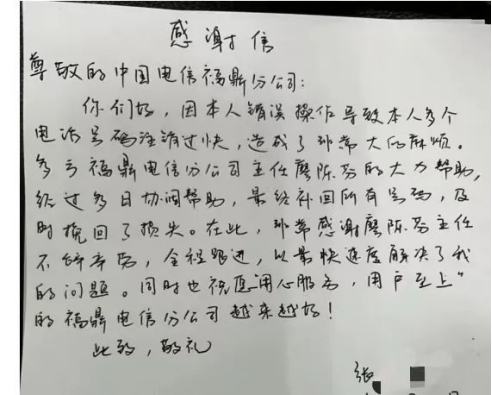 感谢信
尊敬的中国电信福鼎分公司：
你们好，因本人错误操作导致本人多个
电话号码注销过快，造成了非常大的麻烦。
多亏福鼎电信分公司主任廖陈芬的大力帮助，
经过多日协调帮助，最终补回所有号码，及
时挽回了损失。在此，非常感谢廖陈芬主任
不辞辛劳，全程跟进，以最快速度解决了我
的问题。同时也祝愿用心服务，用户至上”
的福鼎电信分公司越来越好！
此致，敬礼
张